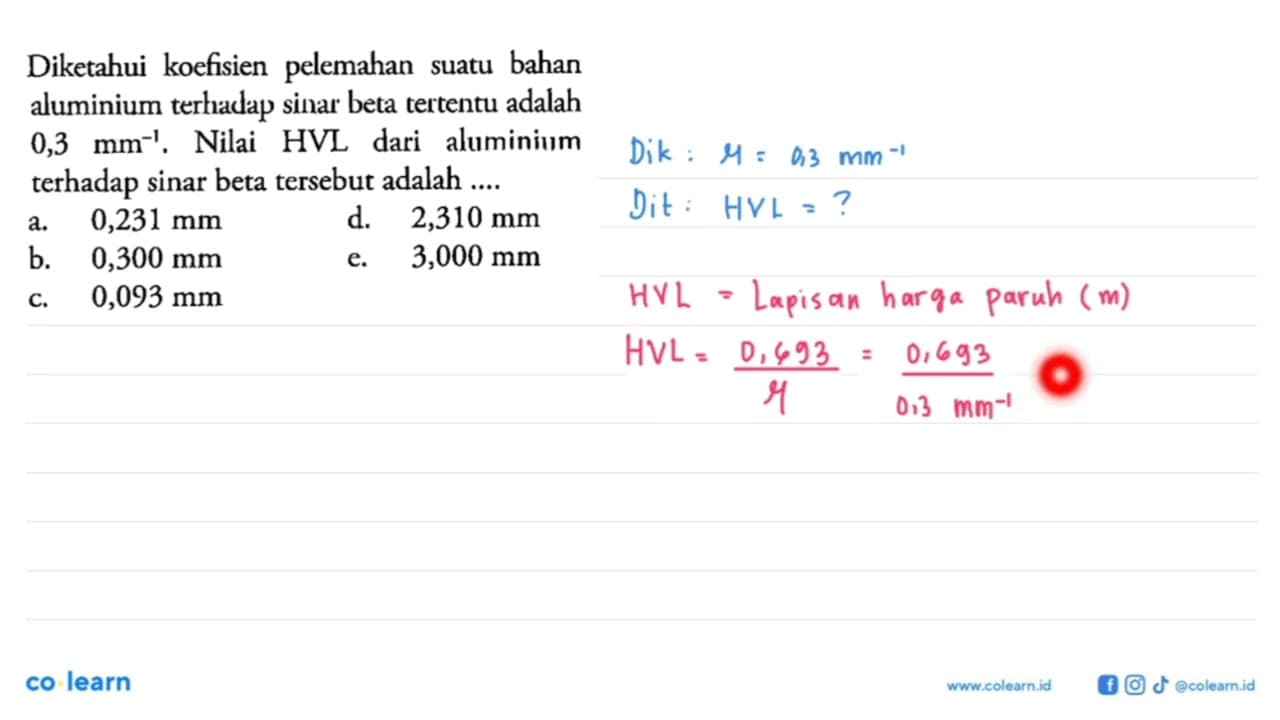 Diketahui koefisien pelemahan suatu bahan
aluminium terhadap sinar beta tertentu adalah
0,3 mm⁻¹. Nilai HVL dari aluminium
terhadap sinar beta tersebut adalah ....
a. 0,231 mm d. 2,310 mm
b. 0,300 mm e. 3,000 mm
c. 0,093 mm
Dik : μ = 0,3 mm⁻¹
Dit : HVL = ?
HVL = Lapisan harga paruh (m)
HVL = 0,693 / μ = 0,693 / 0,3 mm⁻¹
co learn
www.colearn.id
@colearn.id